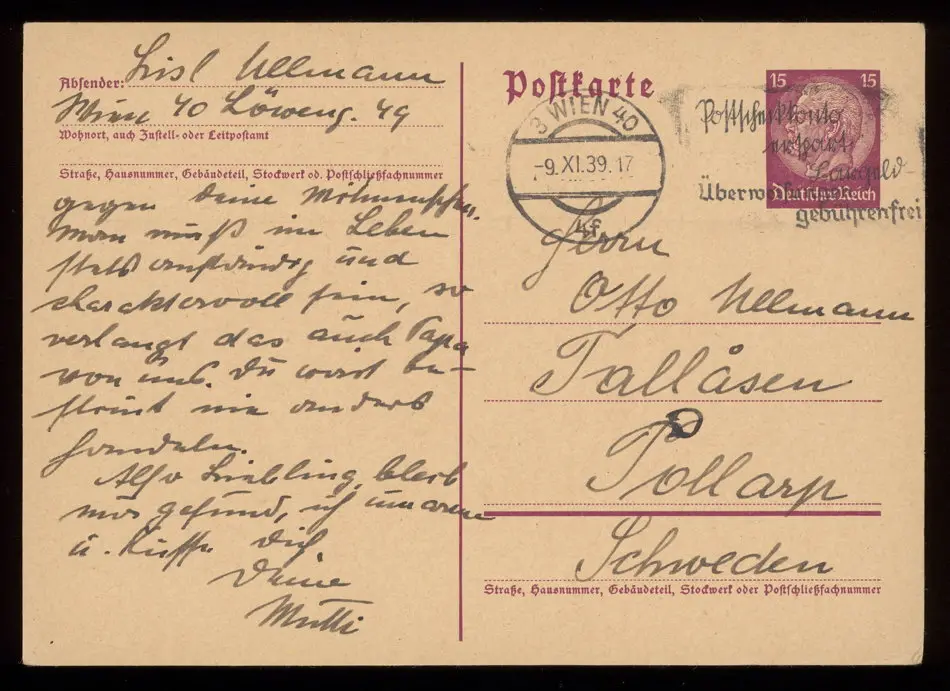 Absender: Lisl Ullmann
Wien 40 Löweng. 49
Wohnort, auch Zustell- oder Leitpostamt
Straße, Hausnummer, Gebäudeteil, Stockwerk od. Postschließfachnummer
gegen deine Mitmenschen.
Man muß im Leben
stets anständig und
charaktervoll sein, so
verlangt das auch Papa
von uns. Du wirst be-
stimmt nie anders
handeln.
Also Liebling, bleib
mir gesund, ich umarme
u. küsse Dich.
Deine
Mutti
Postkarte
3 WIEN 40
-9. XI. 39. 17
4f
Postscheckkonto
erspart
Überweisungen
gebührenfrei
15 15
Deutsches Reich
Herrn
Otto Ullmann
Tallåsen
Tollarp
Schweden
Straße, Hausnummer, Gebäudeteil, Stockwerk oder Postschließfachnummer